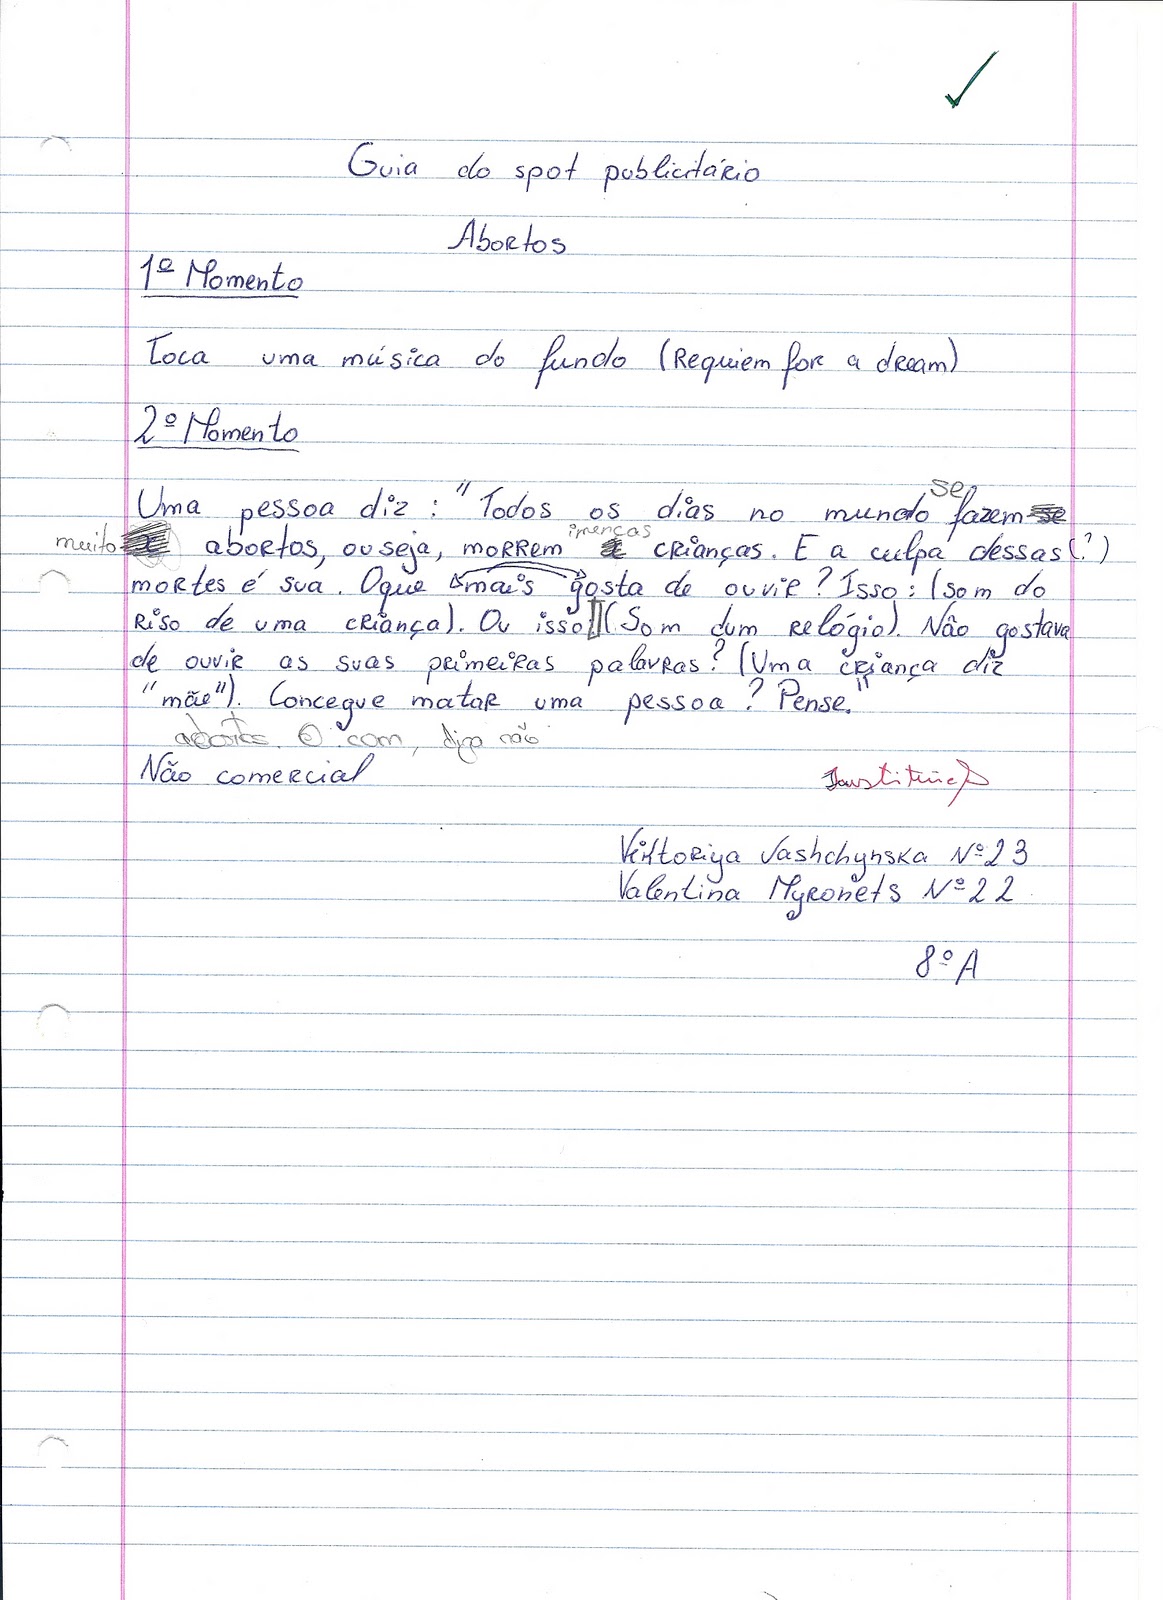 Guia do spot publicitário
Abortos
1º Momento
Toca uma música do fundo (Requiem for a dream)
2º Momento
se
Uma pessoa diz : "Todos os dias no mundo fazem-se
imenças
muito abortos, ou seja, morrem crianças. E a culpa dessas (?)
mortes é sua. Oque mais gosta de ouvir? Isso: (som do
riso de uma criança). Ou isso (Som dum relógio). Não gostava
de ouvir as suas primeiras palavras? (Uma criança diz
"mãe"). Concegue matar uma pessoa? Pense."
com, diga não
Não comercial
Viktoriya Vashchynska Nº23
Valentina Myronets Nº22
8ºA